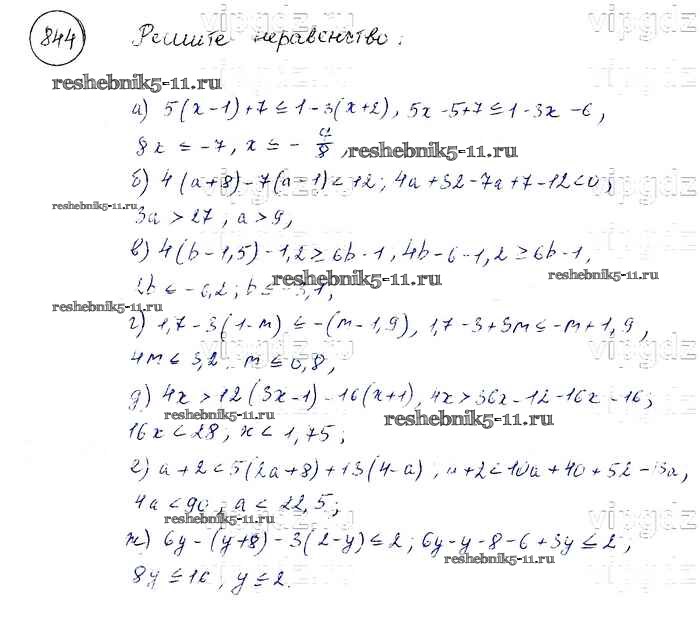 844 Решите неравенство:
reshebnik5-11.ru
а) 5(x-1)+7≤1-3(x+2), 5x-5+7≤1-3x-6,
8x ≤ -7, x ≤ -7/8,
reshebnik5-11.ru
б) 4(a+8)-7(a-1)<12; 4a+32-7a+7-12<0;
reshebnik5-11.ru
3a > 27, a > 9,
в) 4(b-1,5)-1,2≥6b-1, 4b-6-1,2≥6b-1,
reshebnik5-11.ru reshebnik5-11.ru
2b ≤ -6,2; b ≤ -3,1,
reshebnik5-11.ru
г) 1,7-3(1-m)≤-(m-1,9), 1,7-3+3m≤-m+1,9,
4m ≤ 3,2 m ≤ 0,8,
д) 4x>12(3x-1)-16(x+1), 4x>36x-12-16x-16;
reshebnik5-11.ru reshebnik5-11.ru
16x < 28, x < 1,75;
е) a+2<5(2a+8)+13(4-a), a+2<10a+40+52-13a,
reshebnik5-11.ru
4a < 90, a < 22,5;
reshebnik5-11.ru
ж) 6y-(y+8)-3(2-y)≤2; 6y-y-8-6+3y≤2;
reshebnik5-11.ru
8y ≤ 16, y ≤ 2.